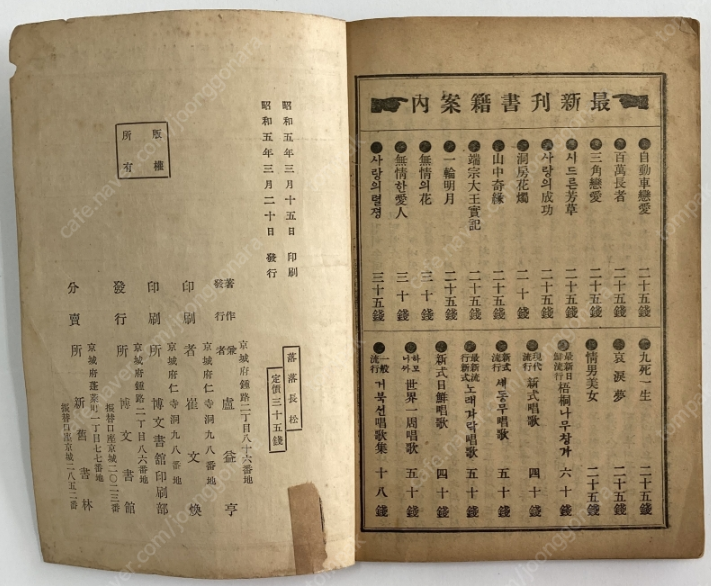 最新刊書籍案內
自動車戀愛 二十五錢
百萬長者 二十五錢
三角戀愛 二十五錢
시드른芳草 二十五錢
사랑의成功 二十五錢
洞房花燭 二十錢
山中奇緣 二十五錢
端宗大王實記 二十五錢
一輪明月 二十五錢
無情의花 三十錢
無情한愛人 三十錢
사랑의 三十五錢
九死一生 二十五錢
哀淚夢 二十五錢
情男美女 二十五錢
最新日鮮流行 梧桐나무창가 六十錢
現代流行 新式唱歌 四十錢
新式流行 새동무唱歌 五十錢
最新流行新式 노래가락唱歌 五十錢
新式日鮮唱歌 四十錢
하모니까 世界一周唱歌 五十錢
一般流行 거북선唱歌集 十八錢
昭和五年三月十五日 印刷
昭和五年三月二十日 發行
版權所有
落落長松
定價三十五錢
京城府鍾路二丁目八十六番地
著作兼發行者 盧益亨
京城府仁寺洞九八番地
印刷者 崔文煥
京城府仁寺洞九八番地
印刷所 博文書館印刷部
京城府鍾路二丁目八六番地
發行所 博文書館
振替口座京城二〇二三番
京城府蓬萊町一丁目七七番地
分賣所 新舊書林
振替口座京城二八五二番
cafe.naver.com/joonggonara